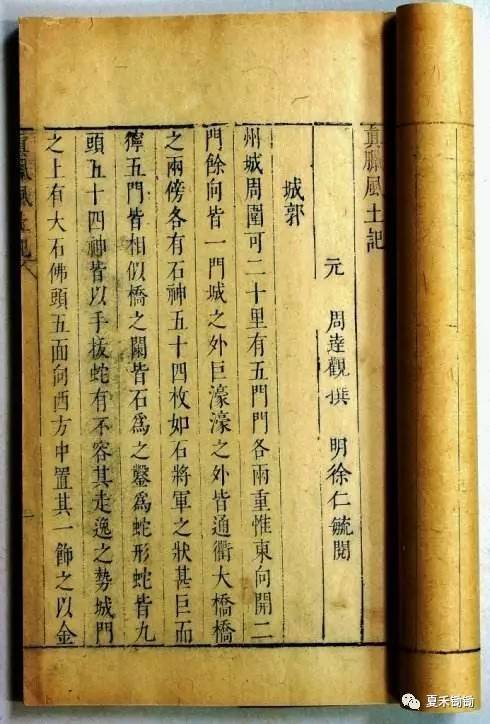 真臘風土記
元 周逹觀撰 明徐仁毓閱
城郭
州城周圍可二十里有五門門各兩重惟東向開二
門餘向皆一門城之外巨濠濠之外皆通衢大橋橋
之兩傍各有石神五十四枚如石將軍之狀甚巨而
獰五門皆相似橋之闌皆石為之鑿為蛇形蛇皆九
頭五十四神皆以手拔蛇有不容其走逸之勢城門
之上有大石佛頭五面向西方中置其一飾之以金
真臘風土記
一
夏禾锄锄